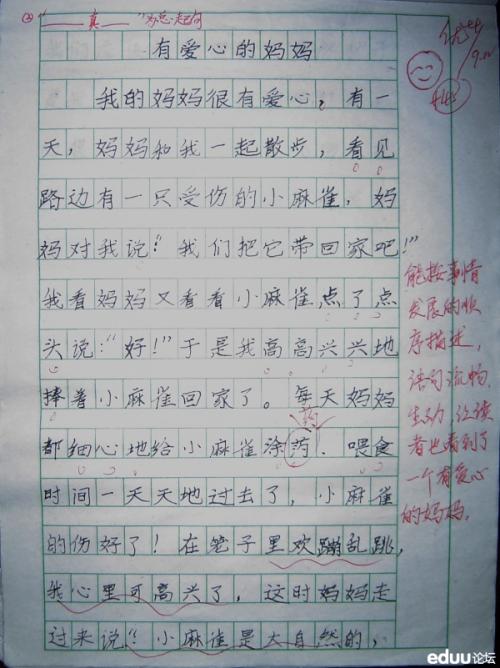 “———真———”为总起句
有爱心的妈妈
我的妈妈很有爱心，有一
天，妈妈和我一起散步，看见
路边有一只受伤的小麻雀，妈
妈对我说：“我们把它带回家吧！”
我看妈妈又看看小麻雀点了点
头说：“好！”于是我高高兴兴地
捧着小麻雀回家了。每天妈妈
药
都细心地给小麻雀涂药．喂食
时间一天天地过去了，小麻雀
的伤好了！在笼子里欢蹦乱跳，
我心里可高兴了，这时妈妈走
过来说：“小麻雀是大自然的，
能按事情
发展的顺
序描述，
语句流畅
生动，让读
者也看到了
一个有爱心
的妈妈。
eduu论坛